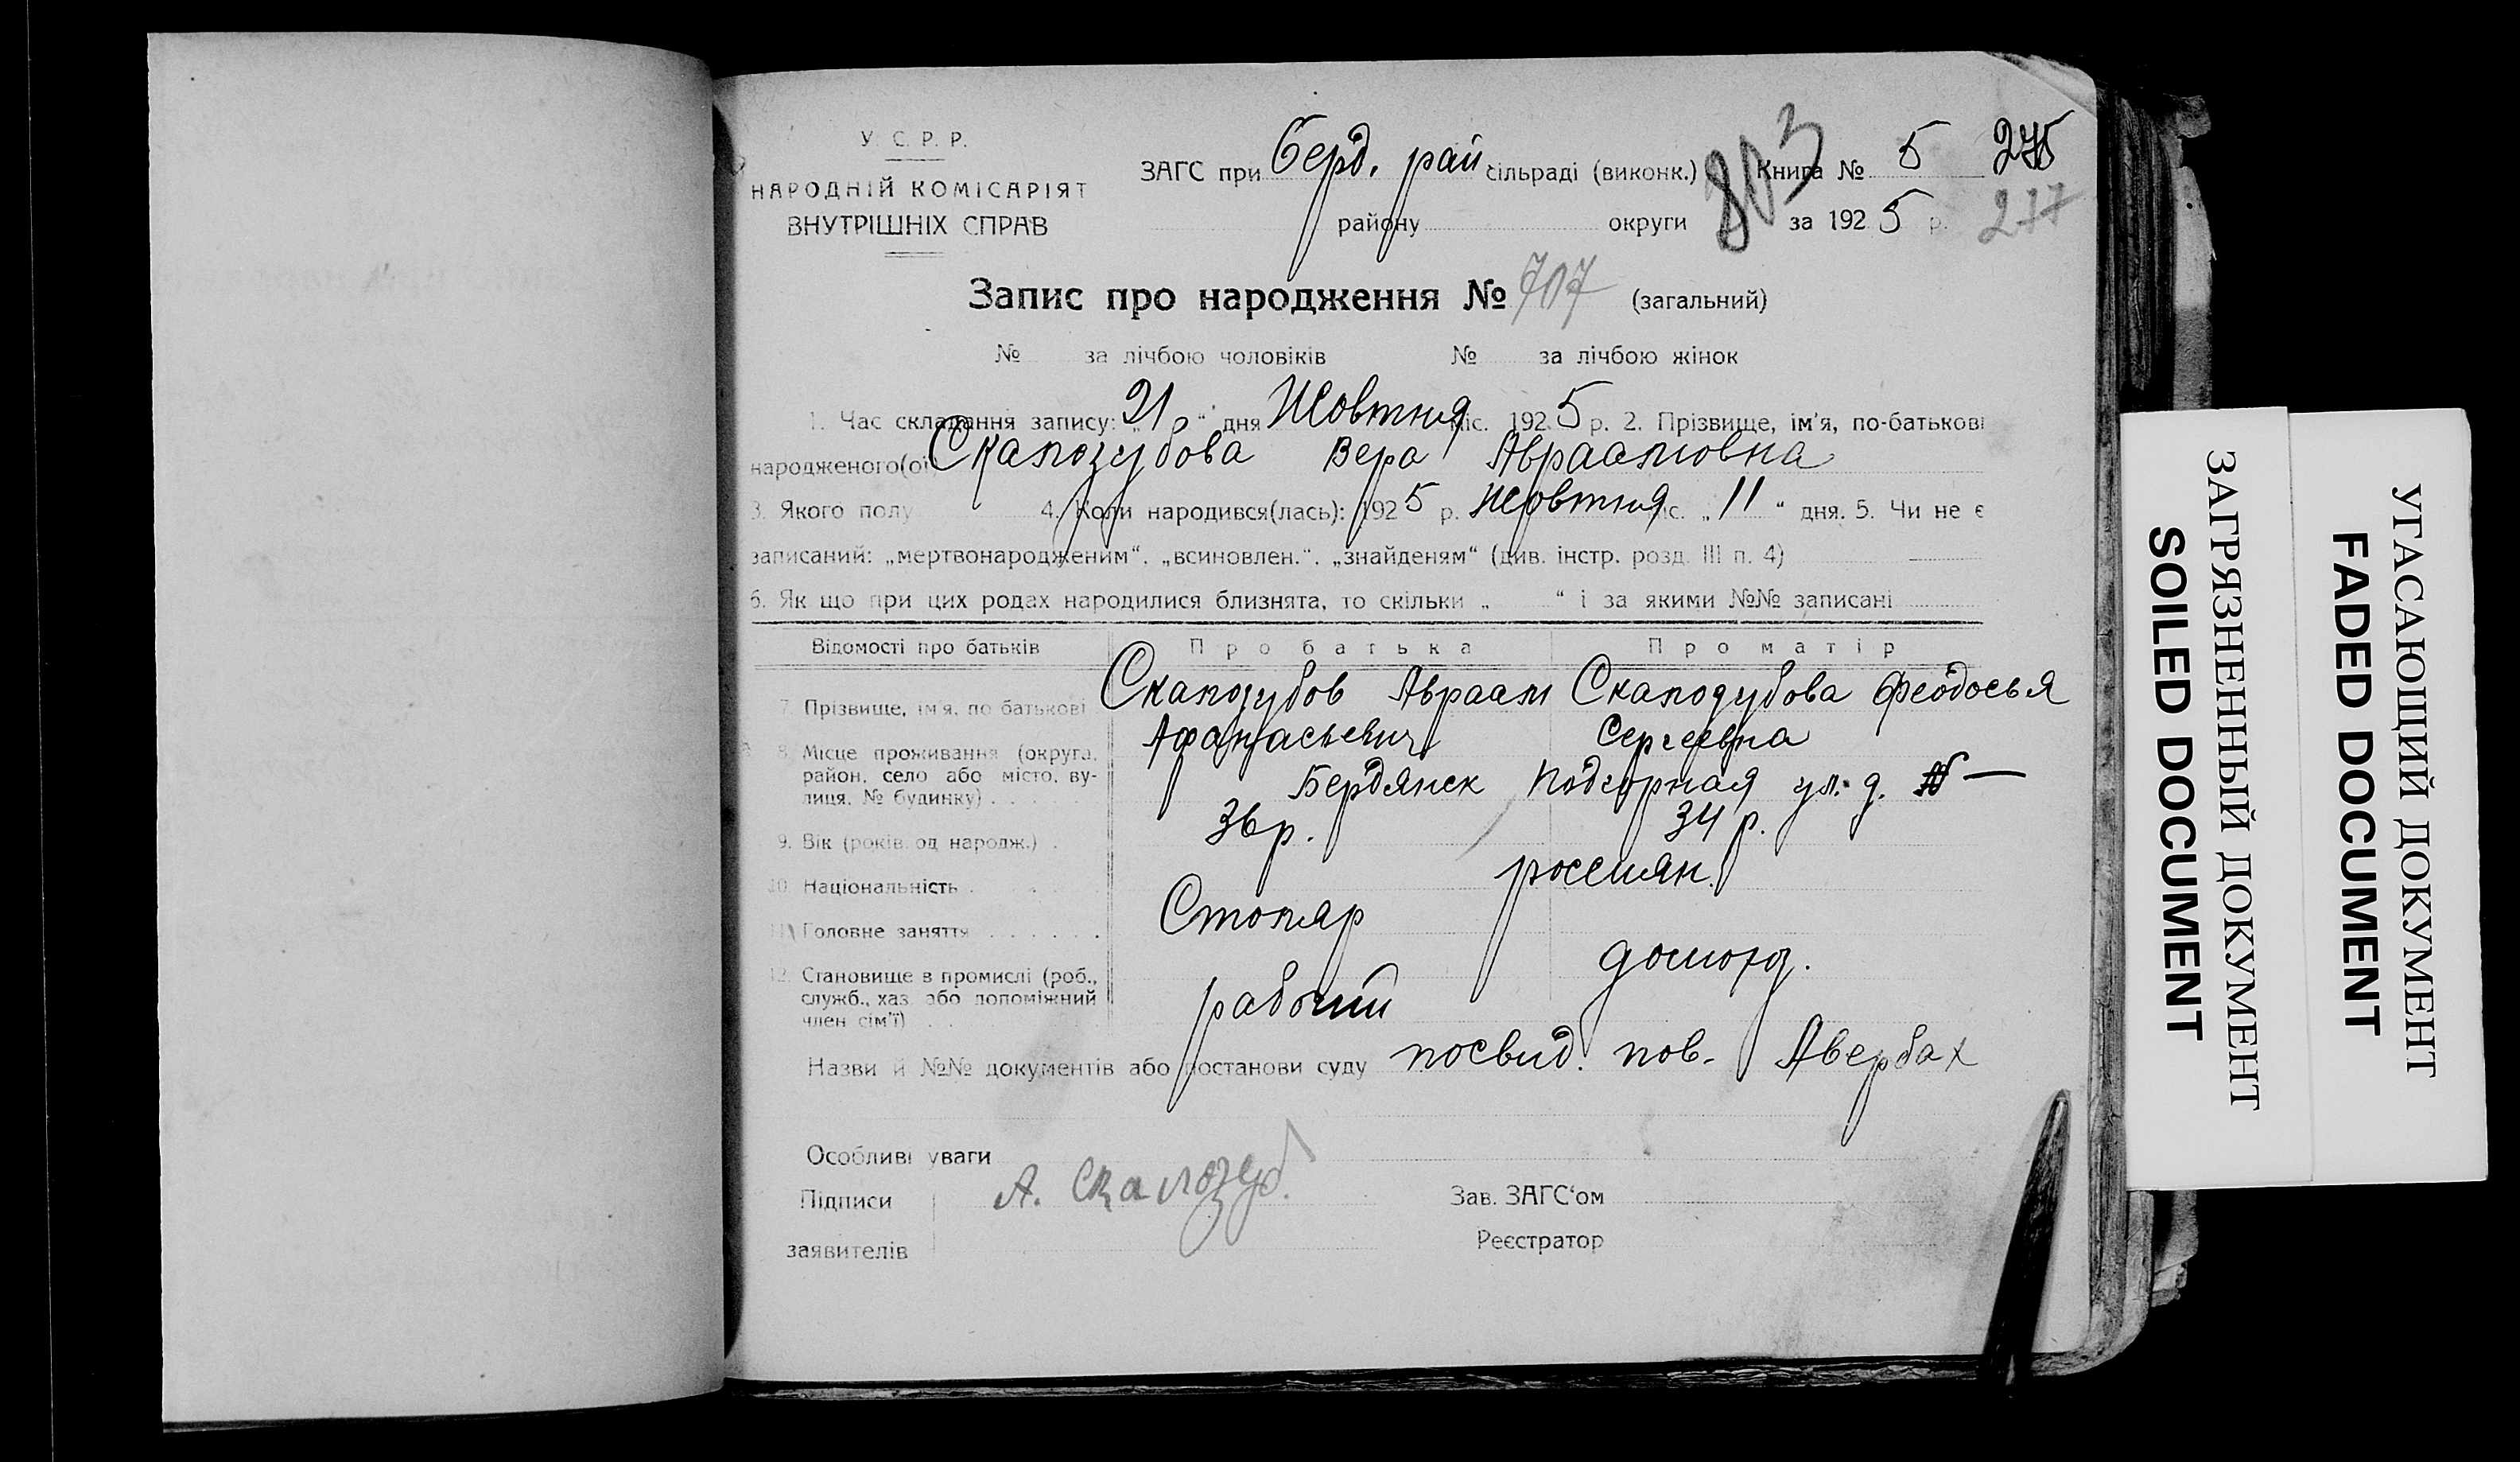 У. С. Р. Р.
НАРОДНІЙ КОМІСАРІЯТ
ВНУТРІШНІХ СПРАВ
ЗАГС при Берд. рай. сільраді (виконк.) Книга № 5 275
803
району округи за 1925 р. 277
Запис про народження № 707 (загальний)
№ за лічбою чоловіків № за лічбою жінок
1. Час складання запису: „21“ дня Жовтня міс. 1925 р. 2. Прізвище, ім'я, по-батькові
народженого(ої) Скалозубова Вера Авраамовна
3. Якого полу 4. Коли народився(лась): 1925 р. Жовтня міс. „11“ дня. 5. Чи не є
записаний: „мертвонародженим“, „всиновлен.“, „знайденям“ (див. інстр. розд. III п. 4)
6. Як що при цих родах народилися близнята, то скільки „ “ і за якими №№ записані
Відомості про батьків Про батька Про матір
7. Прізвище, ім'я, по батькові Скалозубов Авраам Скалозубова Феодосья
Афанасьевич Сергеевна
8. Місце проживання (округа,
район, село або місто, ву-
лиця, № будинку) . . . . . Бердянск Подгорная ул. д. —
9. Вік (років од народж.) . 36 р. 34 р.
10. Національність . . . россиян.
11. Головне заняття . . . . . . Столяр
12. Становище в промислі (роб.,
служб., хаз. або допоміжний
член сім'ї) . . рабочий домохоз.
Назви й №№ документів або постанови суду посвид. пов. Авербах
Особливі уваги
Підписи А. Скалозуб. Зав. ЗАГС‘ом
заявителів Реєстратор
ЗАГРЯЗНЕННЫЙ ДОКУМЕНТ
SOILED DOCUMENT
УГАСАЮЩИЙ ДОКУМЕНТ
FADED DOCUMENT